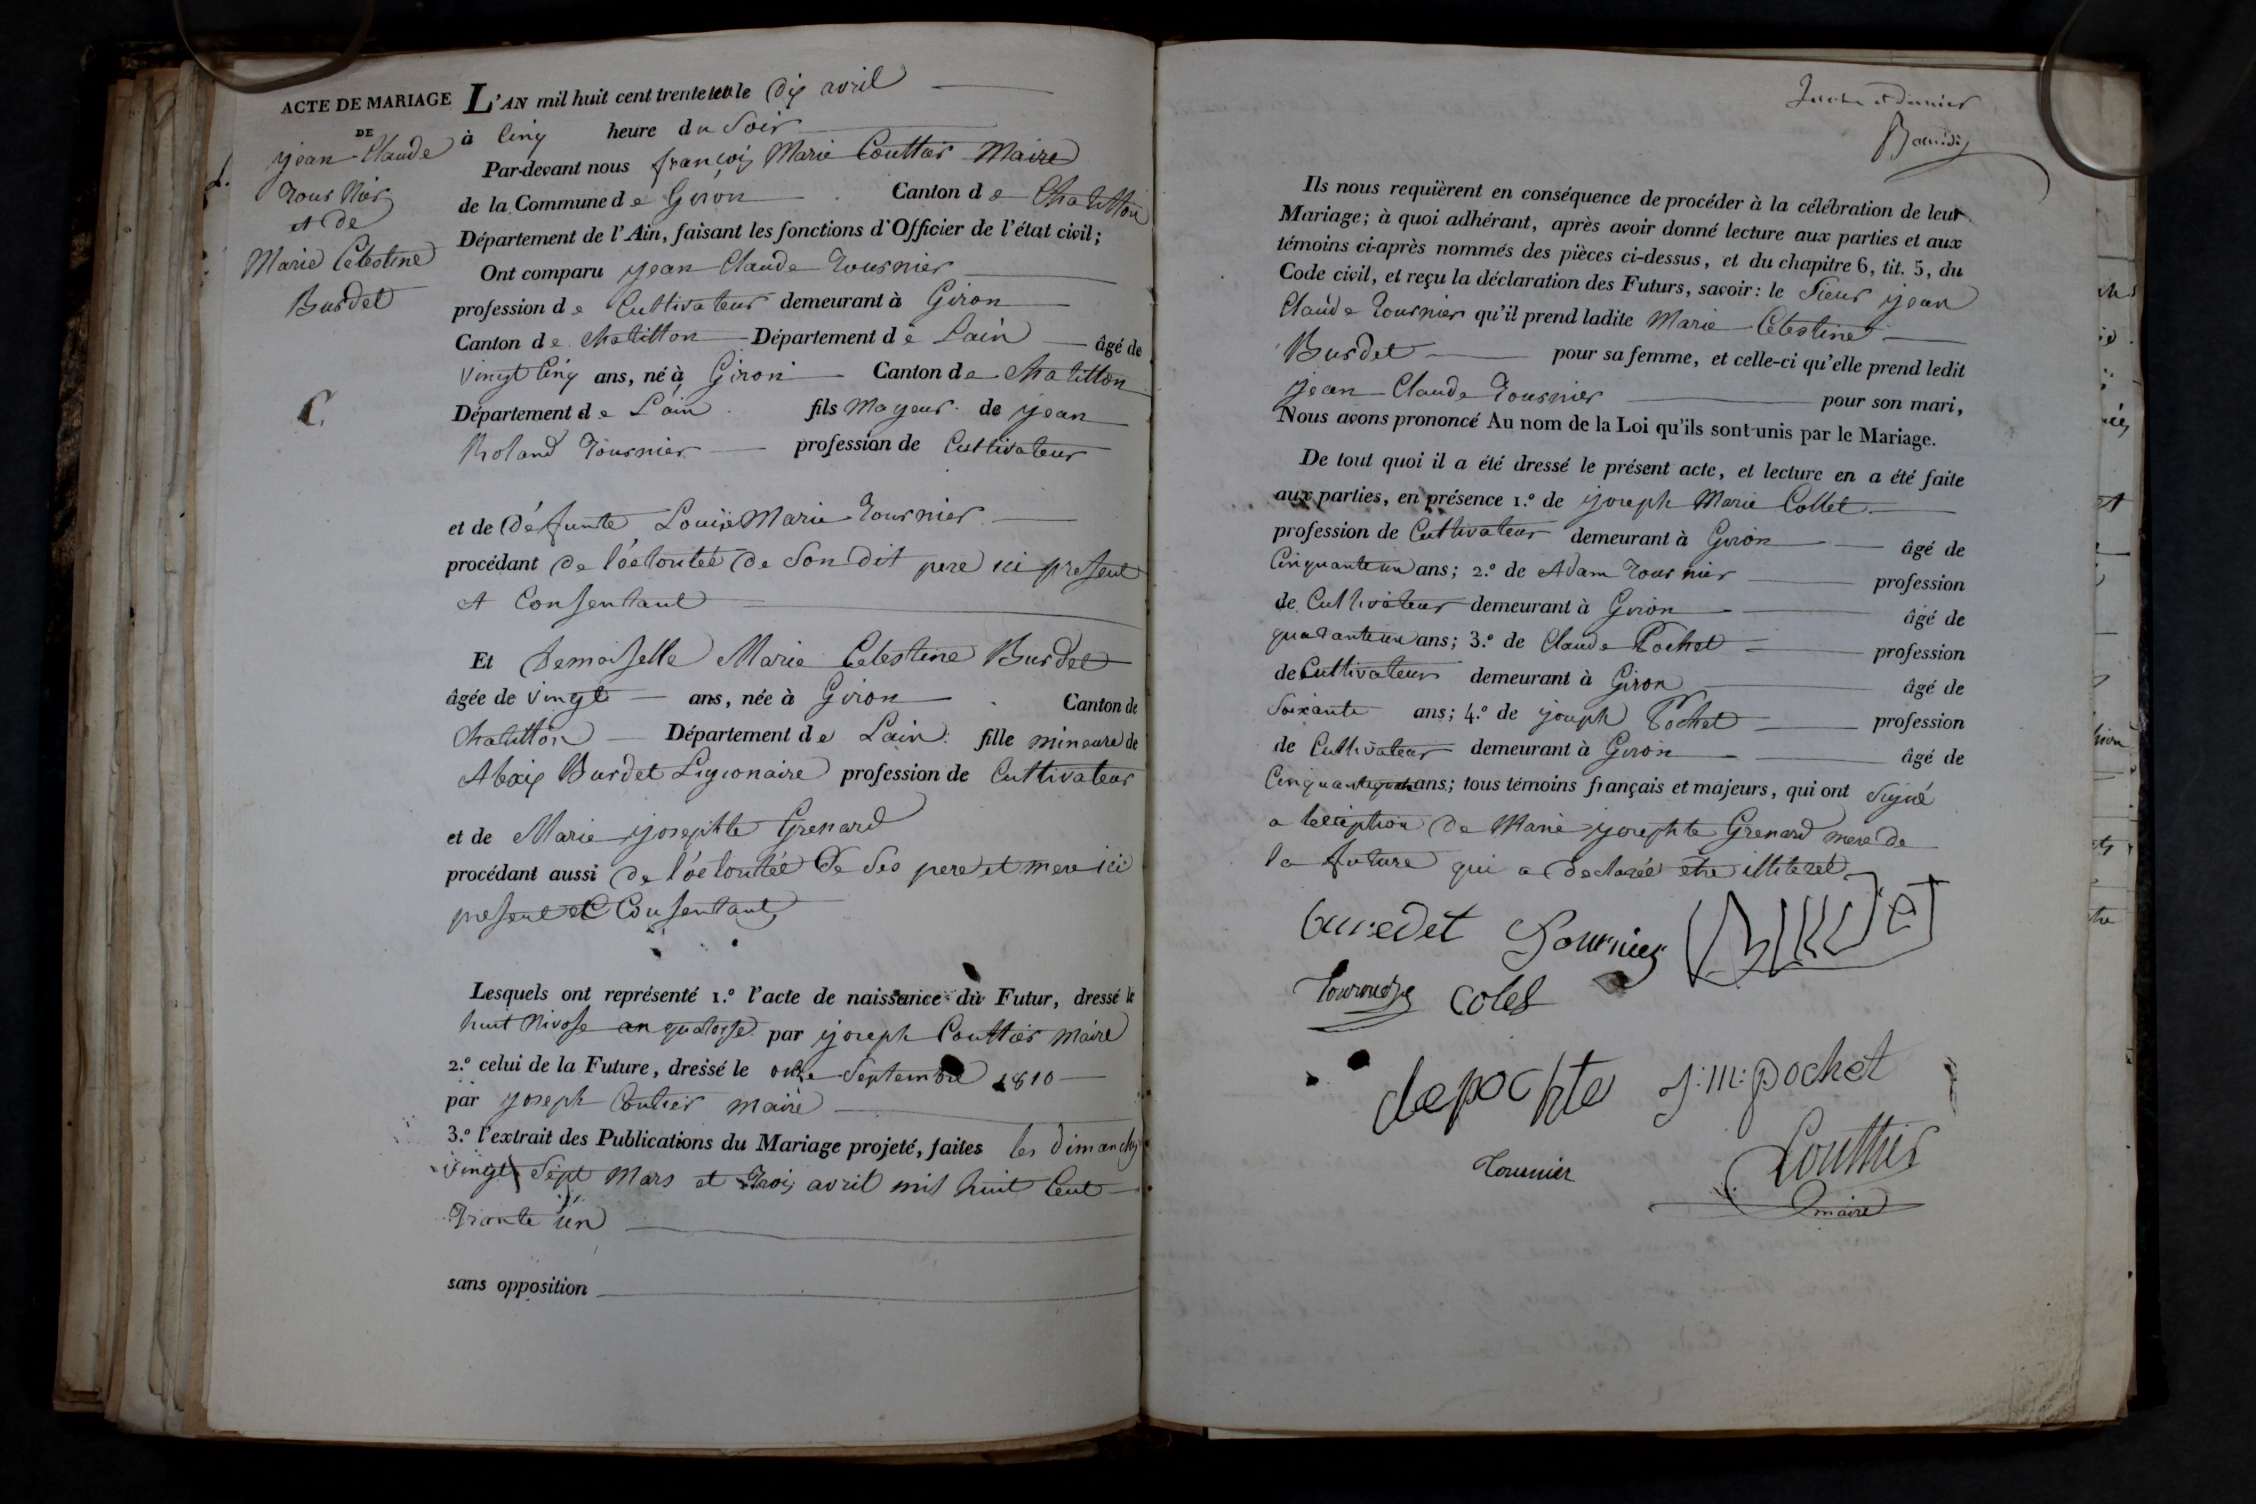 ACTE DE MARIAGE
DE
jean Claude
Tournier
et de
Marie Celestine
Burdet
C.
L'AN mil huit cent trente un le dix avril
à Cinq heure du Soir
Par-devant nous françois Marie Couttier Maire
de la Commune de Giron Canton de Chatillon
Département de l'Ain, faisant les fonctions d'Officier de l'état civil;
Ont comparu jean Claude Tournier
profession de Cultivateur demeurant à Giron
Canton de Chatillon Département de Lain âgé de
vingt Cinq ans, né à Giron Canton de Chatillon
Département de Lain fils Mageur de jean
Roland Tournier profession de Cultivateur
et de défunte Louise Marie Tournier
procédant de l'óelontée de Son dit pere ici present
et Consentant
Et Demoiselle Marie Celestine Burdet
âgée de vingt ans, née à Giron Canton de
Chatillon Département de Lain fille mineure de
Alexis Burdet Ligionaire profession de Cultivateur
et de Marie josephte Grenard
procédant aussi de l'óelontée de ses pere et mere ici
present et Consentant
Lesquels ont représenté 1.º l'acte de naissance du Futur, dressé le
huit Nivose an quatorse par joseph Couttier Maire
2.º celui de la Future, dressé le onze Septembre 1810
par joseph Coutier maire
3.º l'extrait des Publications du Mariage projeté, faites les dimanches
vingt Sept Mars et Trois avril mil huit Cent
Trante un
sans opposition
dernier
Ils nous requièrent en conséquence de procéder à la célébration de leur
Mariage; à quoi adhérant, après avoir donné lecture aux parties et aux
témoins ci-après nommés des pièces ci-dessus, et du chapitre 6, tit. 5, du
Code civil, et reçu la déclaration des Futurs, savoir: le Sieur jean
Claude Tournier qu'il prend ladite Marie Celestine
Burdet pour sa femme, et celle-ci qu'elle prend ledit
jean Claude Tournier pour son mari,
Nous avons prononcé Au nom de la Loi qu'ils sont unis par le Mariage.
De tout quoi il a été dressé le présent acte, et lecture en a été faite
aux parties, en présence 1.º de joseph Marie Collet
profession de Cultivateur demeurant à Giron âgé de
Cinquante un ans; 2.º de Adam Tournier profession
de Cultivateur demeurant à Giron âgé de
quarante un ans; 3.º de Claude Pochet profession
de Cultivateur demeurant à Giron âgé de
Soixante ans; 4.º de joseph Pochet profession
de Cultivateur demeurant à Giron âgé de
Cinquante ans; tous témoins français et majeurs, qui ont Signé
a lexception de Marie josephte Grenard mere de
la future qui a declarée etre illiteret
Tournier Burdet
Colet
J: M: pochet
Tournier Couttier
maire